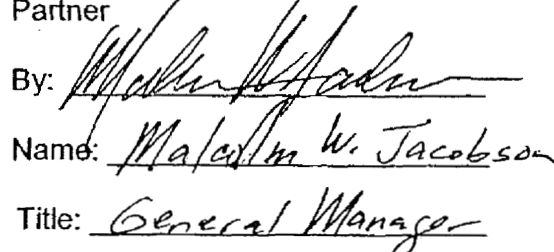 Partner
By:
Name: Malcolm W. Jacobson
Title: General Manager